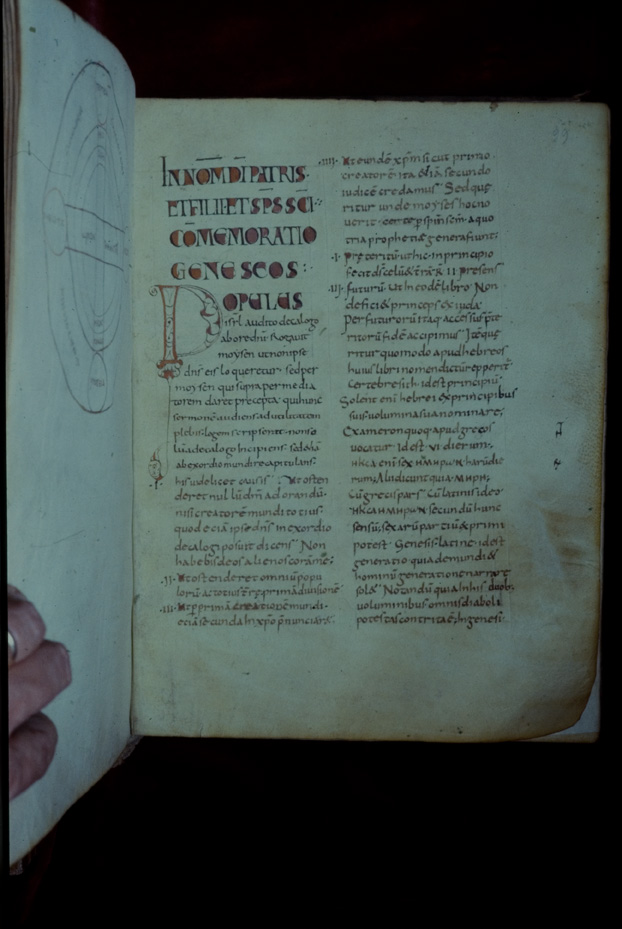 IN NOM̄ DĪ PATRIS·
ET FILII·ET SP̄S SC̄I·
COM̄EMORATIO
GENESEOS:
POPULUS
isrl̄ audito decalogo
abored̄nt Rogauit
moysen ut non ipse
dn̄s eis loqueretur· sed per
moysen qui supra per media
torem daret precepta· qui hunc
sermonē audiens ad utilitatem
plebis· legem scripsent· non so
lū a decalogo Incipiens· sed etiā
ab exordio mundi recapitulans·
his uidelicet causis· I Ut osten
deret nullū dm̄ adorandū·
nisi creatorē mundi totius·
quod ecia ipse dn̄s in exordio
decalogi posuit dicens· Non
habebis deos alienos corā me:
·II· Ut ostenderet omniū popu
lorū
·III· Ut per primā creationē mundi·
eciā secunda In xp̄o p̄nunciaret
·IIII· Ut eundē xp̄m sicut primo
creatorē· ita & iā secundo
iudicē credamus· Sed quę
ritur unde moyses hoc no
uerit· certe per sp̄m sc̄m· a quo
tria prophetię genera fiunt:
·I· Pręteritū ut hic· in principio
fecit ds̄ celū & trā· & II presens
·III· futurū· Ut In eodē libro· Non
deficiet princeps ex iuda·
Per futurorū itaq· accessū p̄te
ritorū fidē accipimus· Itē quę
ritur quomodo apud hebreos
huius libri nomen dictū repperit̄
Certe bresith· id est principiū·
Solent enī hebrei ex principibus
suis· uolumina sua nominare;
Exameron quoq· apud grecos
uocatur· Id est· vi dierum;
enī sex
Cū grecis pars· Cū latinis ideo
secundū hunc
sensū; sex arū partiū exprimi
potest· Genesis· latine· id est
generatio· quia de mundi &
hominū generatione narrare
solet· Notandū quia In his duob;
uoluminibus omnis diaboli
potestas contrita ē; In genesi·